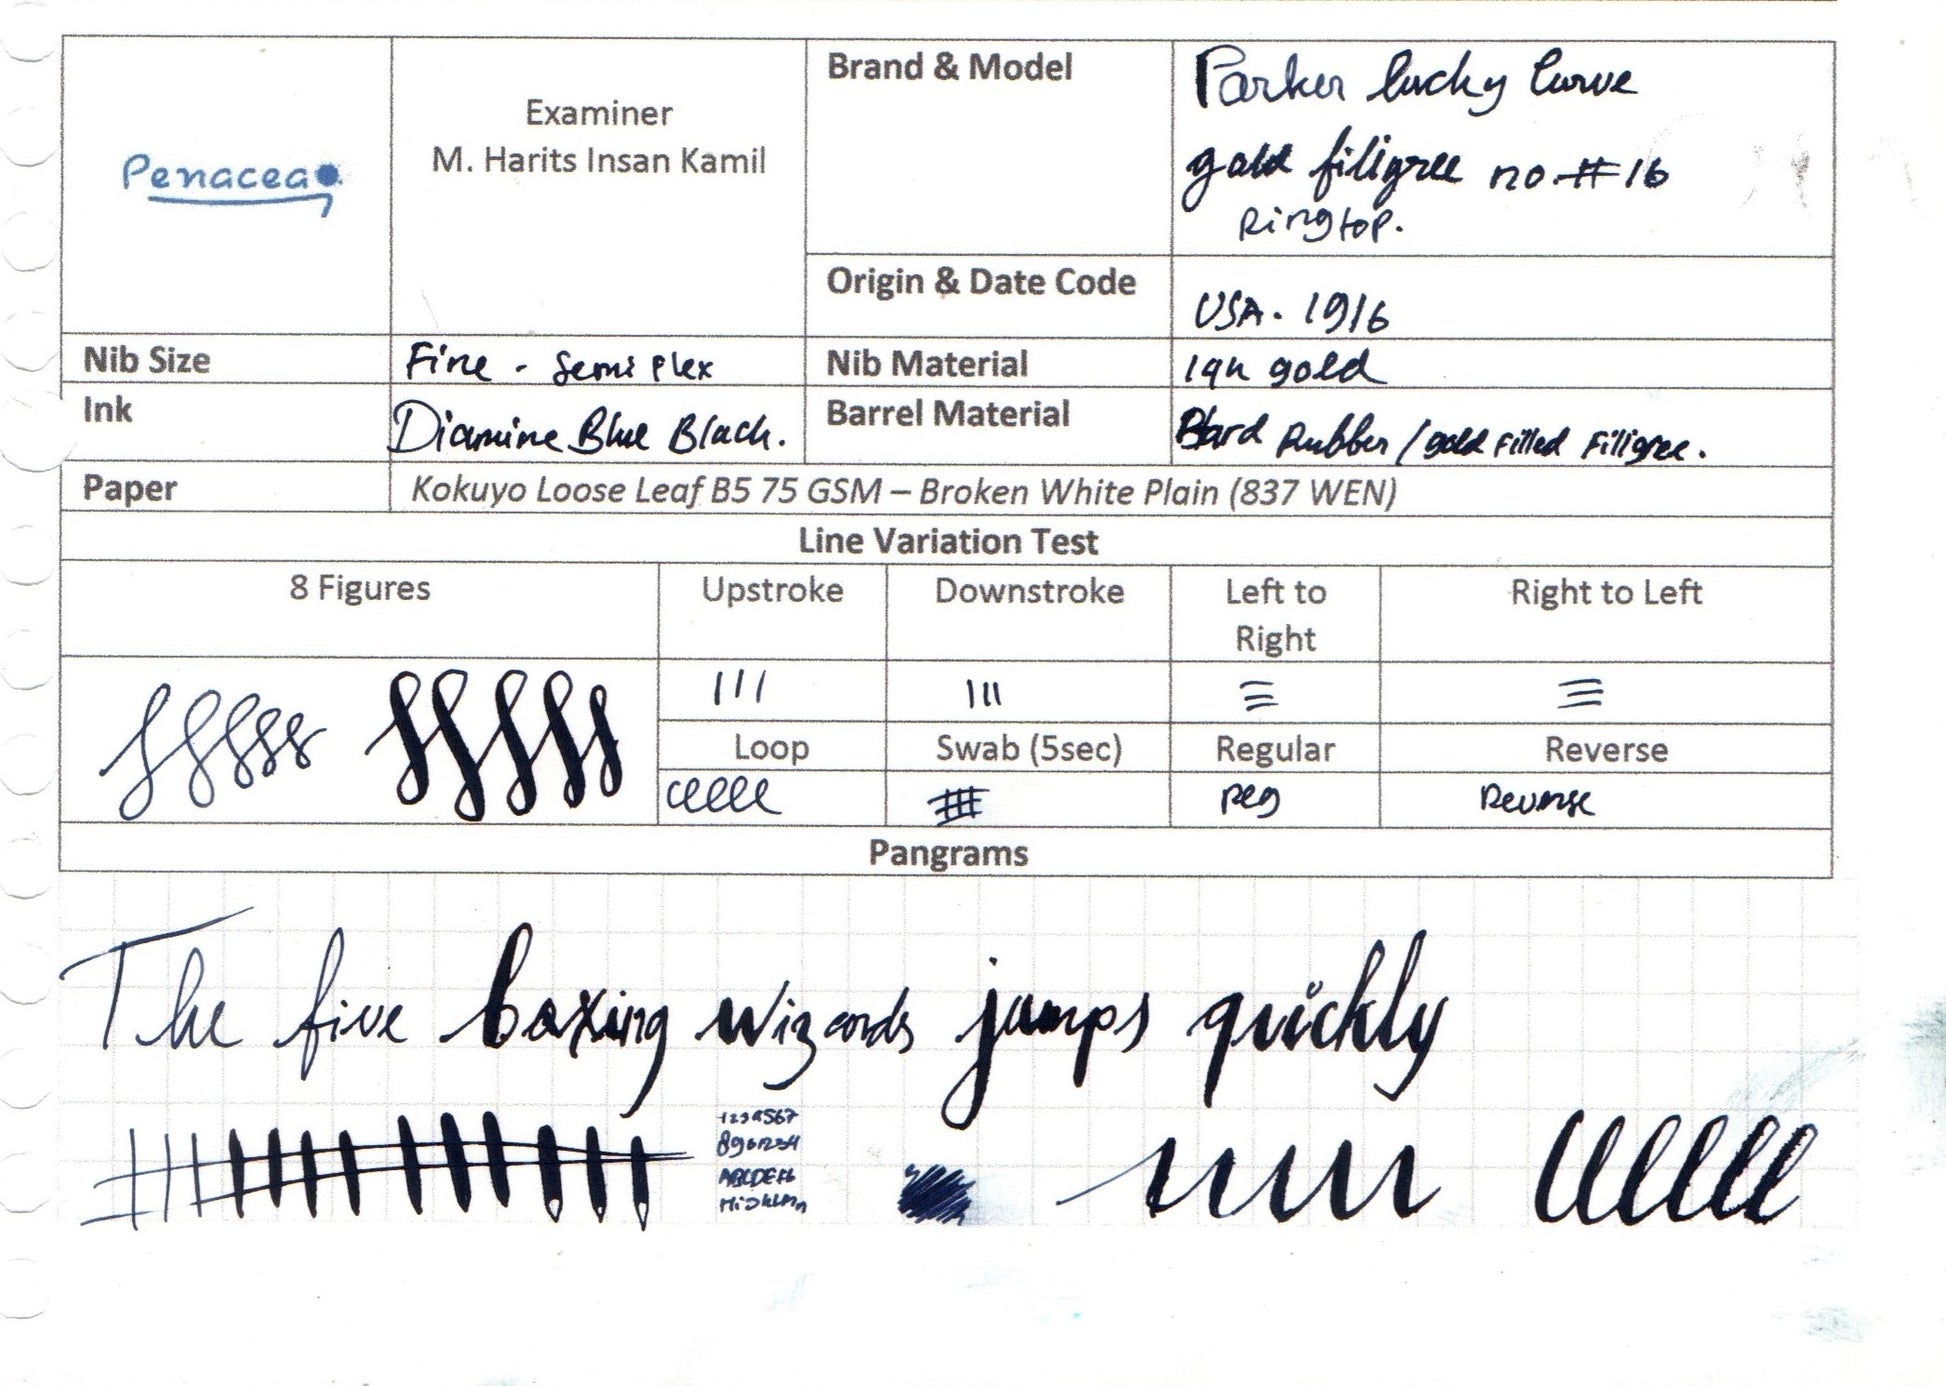 Penacea
Examiner
M. Harits Insan Kamil
Brand & Model
Parker lucky Curve
gold filigree no.#16
Ringtop.
Origin & Date Code
USA. 1916
Nib Size
Fine - Semi Flex
Nib Material
14k gold
Ink
Diamine Blue Black.
Barrel Material
Hard Rubber / gold Filled Filigree.
Paper
Kokuyo Loose Leaf B5 75 GSM – Broken White Plain (837 WEN)
Line Variation Test
8 Figures
Upstroke
Downstroke
Left to
Right
Right to Left
Loop
Swab (5sec)
Regular
Reverse
Reg
Reverse
Pangrams
The five boxing wizards jumps quickly
1234567
8901234